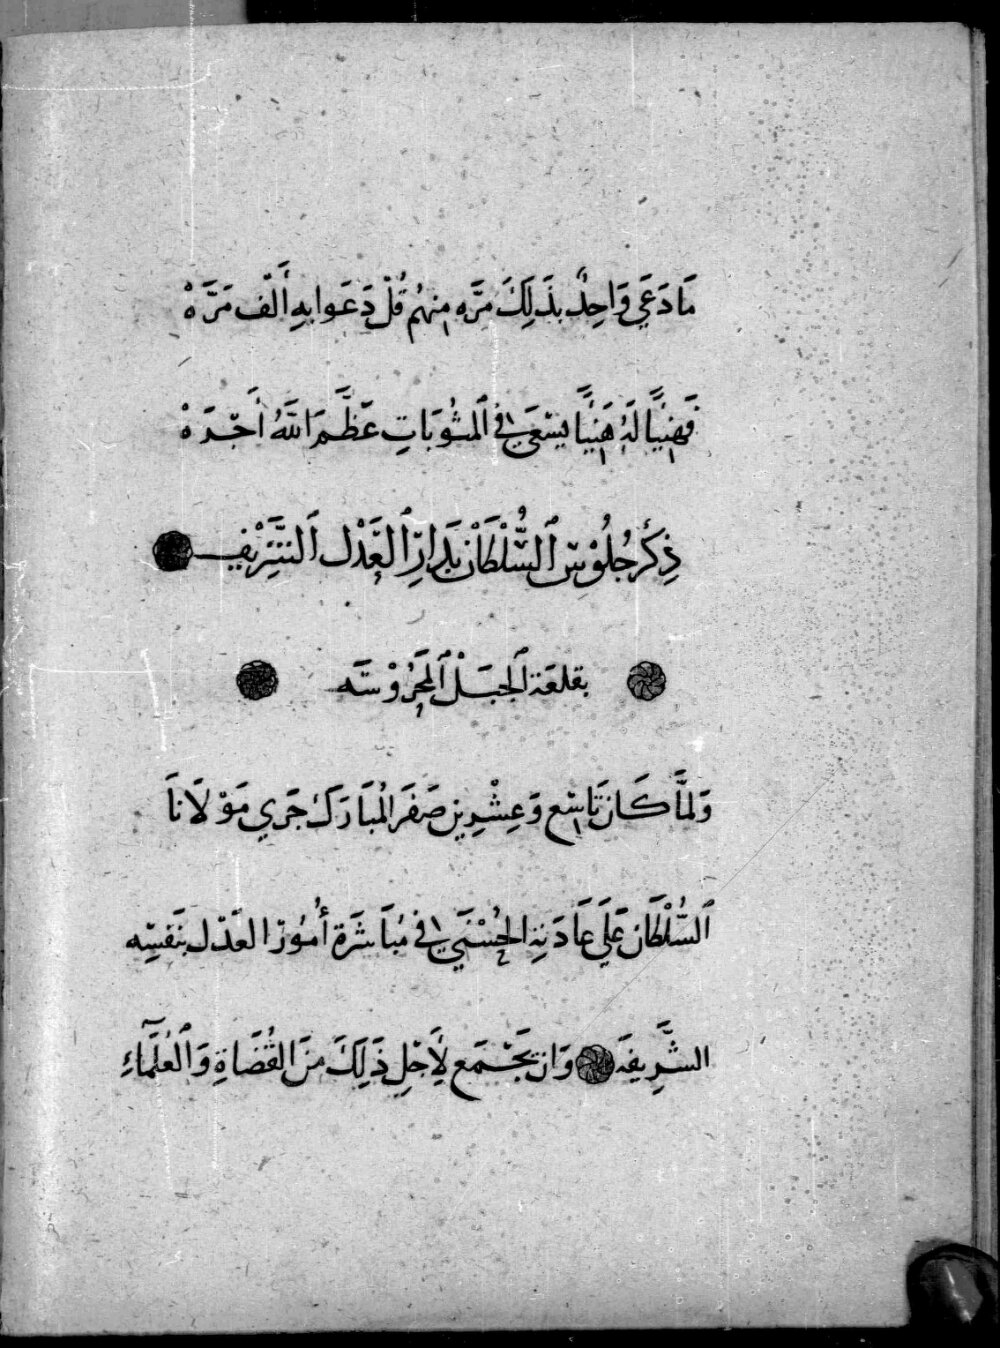 مَا دَعَي وَاحِدٌ بذَلِكَ مَرَّه منهُم قُلْ دَعَوا بهِ أَلْف مَرَّهْ
فَهَنِيًّا لَهُ هَنِيًّا يسْعَي في اَلمثُوبَاتِ عَظَّمَ اَللَّهُ أَجْرَهْ
ذِكْر جُلُوْس اَلسُّلْطَانْ بدَارِ اَلعَدْل اَلشَّرْيف
بقلعَة اَلجبَلْ اَلمحَرُوْسَه
وَلمَّا كَان تَاسِع وَعِشْرِين صَفَر المُبَارَكْ جَرَي مَوْلَانَا
اَلسُّلْطَان عَلَي عَادَتِهِ الحُسْنَي في مُبَاشَرَة أُمُوْر العَدْل بنَفسِه
الشَّرِيفَه وَان يجْتَمع لِأَجْلِ ذَلِكَ مِنَ القُضَاةِ وَالعُلَمَآءِ